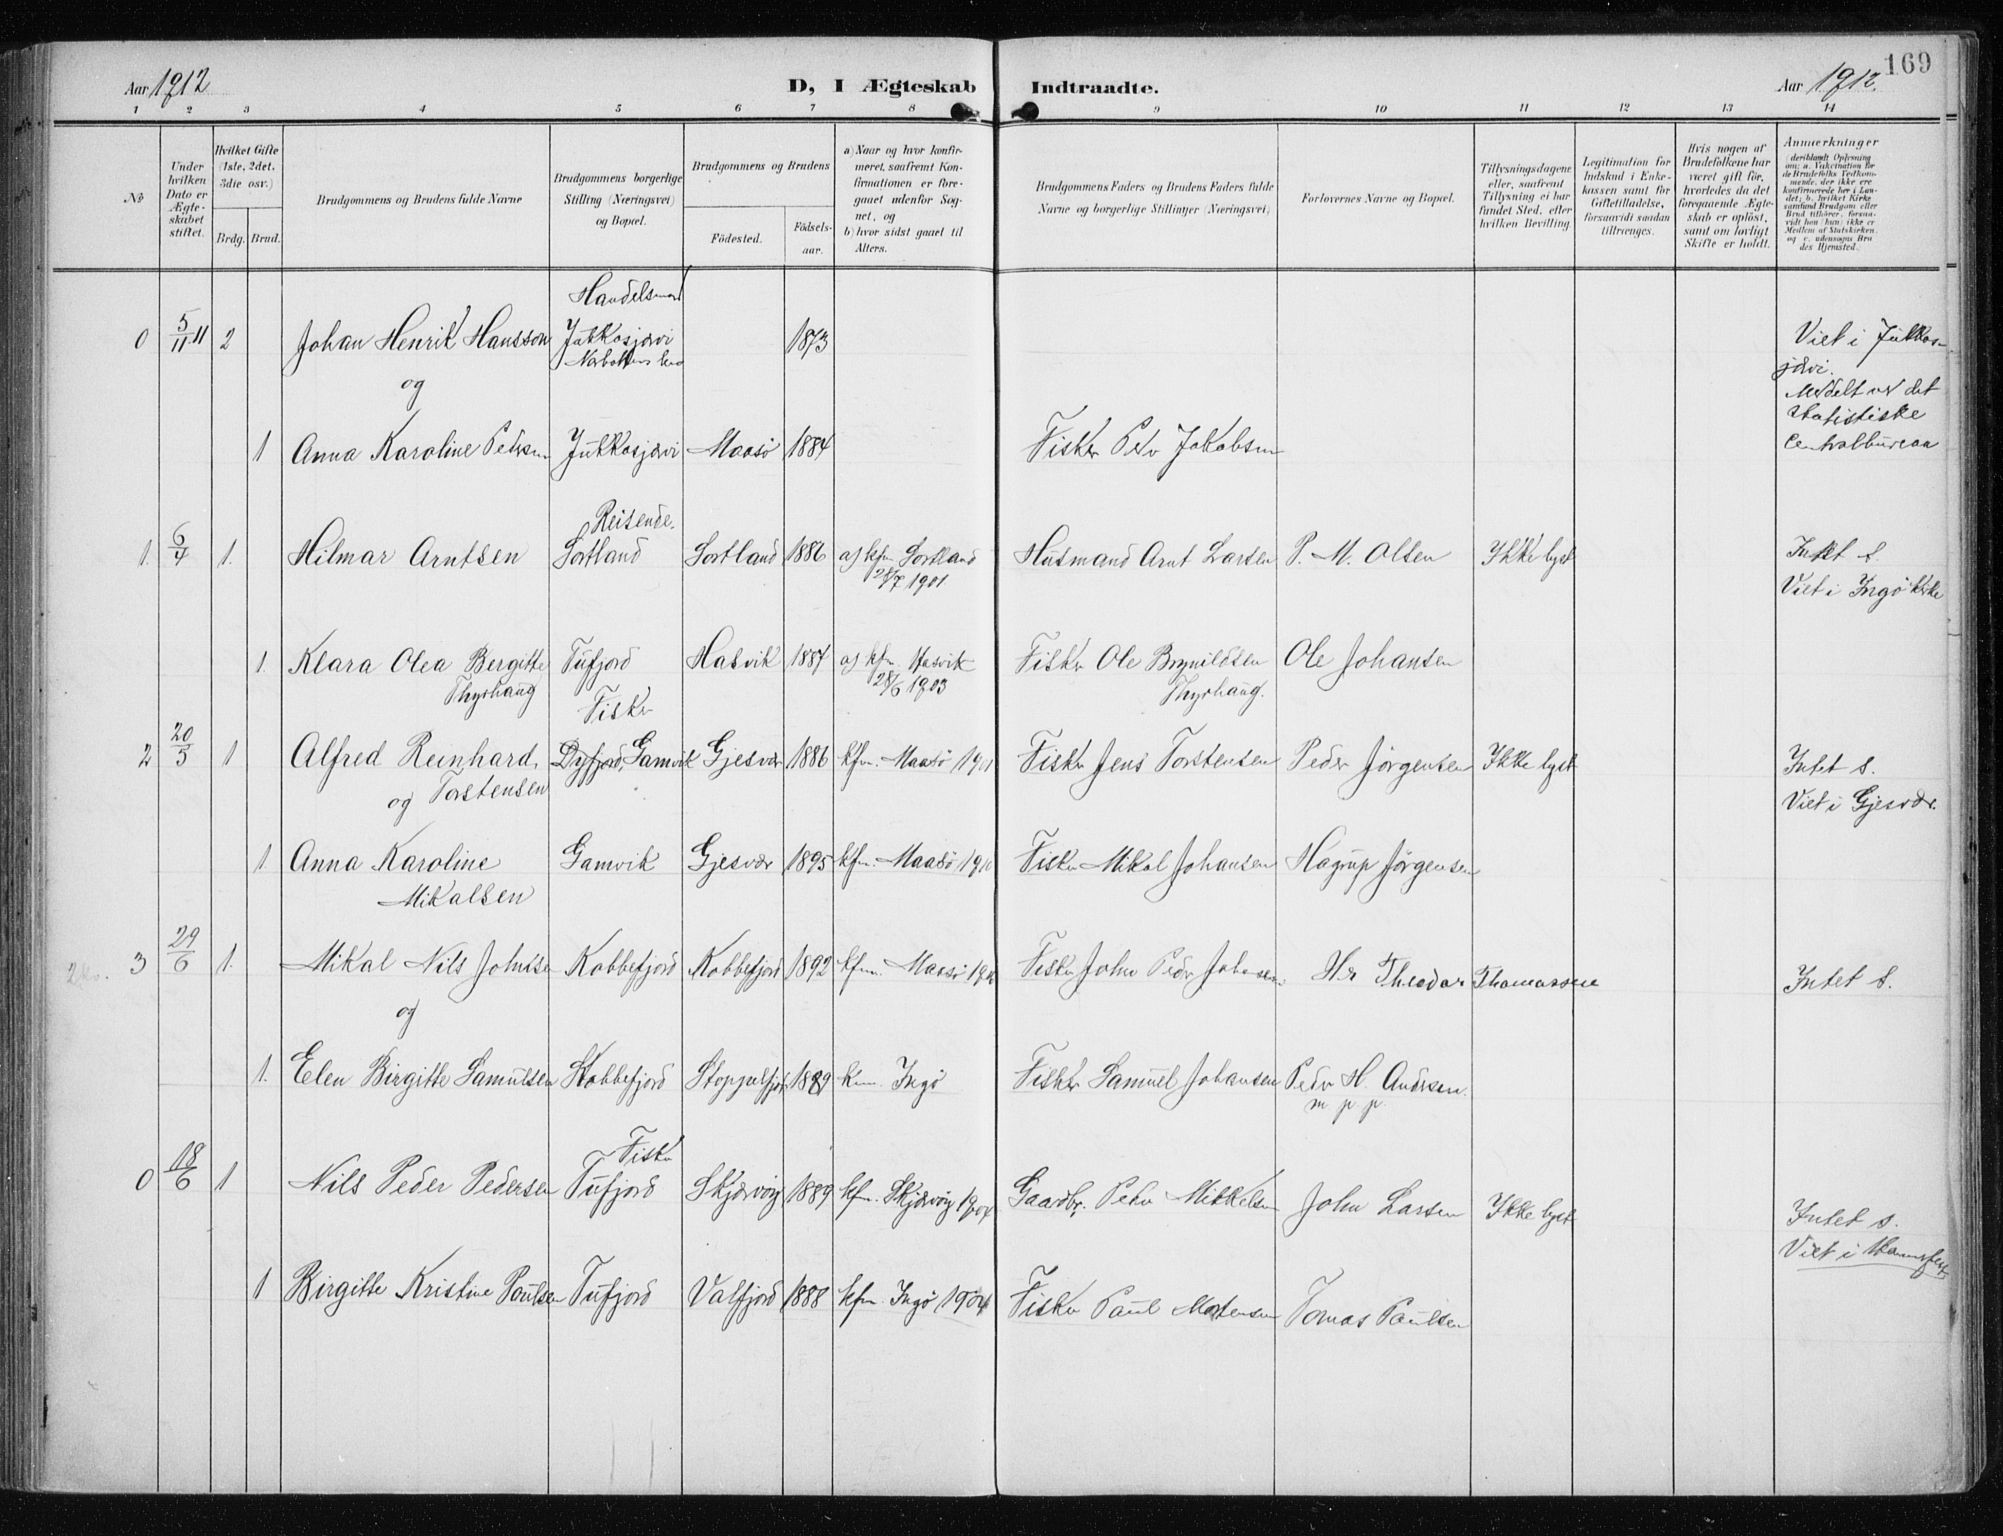 169
Aar 1912 D, I Ægteskab Indtraadte. Aar 1912.
1 2 3 4 5 6 7 8 9 10 11 12 13 14
No.
Under hvilken Dato er Ægteskabet stiftet.
Hvilket Gifte (1ste, 2det, 3die osv.)
Brdg. Brud.
Brudgommens og Brudens fulde Navne
Brudgommens borgerlige Stilling (Næringsvei) og Bopæl.
Brudgommens og Brudens
Fødested. Fødselsaar.
a) Naar og hvor konfirmeret, saafremt Konfirmationen er foregaaet udenfor Sognet, og
b) hvor sidst gaaet til Alters.
Brudgommens Faders og Brudens Faders fulde Navne og borgerlige Stillinger (Næringsvei)
Forlovernes Navne og Bopæl.
Tillysningsdagene eller, saafremt Tillysning ei har fundet Sted, efter hvilken Bevilling.
Legitimation for Indskud i Enkekassen samt for Giftetilladelse, forsaavidt saadan tiltrænges.
Hvis nogen af Brudefolkene har været gift før, hvorledes da det foregaaende Ægteskab er opløst, samt om lovligt Skifte er holdt.
Anmærkninger (deriblandt Oplysning om: a. Vakcination for de Brudefolks Vedkommende, der ikke ere konfirmerede her i Landet; b. hvilket Kirkesamfund Brudgom eller Brud tilhører, forsaavidt han (hun) ikke er Medlem af Statskirken, og c. udensogns Brudes Hjemsted.
Handelsmand
0 5/11 11 2 Johan Henrik Hansson Jukkasjærvi 1873 Viet i Jukkasjærvi.
Norbottens len
og Meddelt av det statistiske Centralbureau
1 Anna Karoline Pedersen Jukkasjærvi Maasø 1884 Fisker Peder Jakobsen
Reisende.
1. 6/4 1. Hilmar Arntsen Sortland Sortland 1886 a) kfm. Sortland Husmand Arnt Larsen P. M. Olsen Ikke lyst Intet s.
28/7 1901 Viet i Ingø Kirke
1. Klara Olea Bergitte Tufjord Hasvik 1884 a) kfm. Hasvik Fisker Ole Brynildsen Ole Johansen
Thyrhaug 28/6 1903 Thyrhaug.
Fisker
2 20/5 1 Alfred Reinhard Dyfjord, Gamvik Gjesvær 1886 kfm. Maasø 1901 Fisker Jens Torstensen Peder Jørgensen Ikke lyst Intet s.
og Torstensen Viet i Gjesvær.
1. Anna Karoline Gamvik Gjesvær 1895 kfm. Maasø 1910 Fisker Mikal Johansen Hagrup Jørgensen
Mikalsen
3 29/6 1. Mikal Nils Johnsen Kobbefjord Kobbefjord 1892 kfm. Maasø Fisker John Peder Johansen Hr Theodor Thomassen Intet s.
og
1. Elen Birgitte Samulsen Kobbefjord 1889 Ingø Fisker Samuel Johansen Peder H. Andersen.
m p p
Fisker
0 18/6 1 Nils Peder Pedersen Tufjord Skjærvøy 1889 kfm. Skjærvøy 1904 Gaardbr. Peder Mikkelsen John Larsen Ikke lyst Intet s.
Viet i Hammerfest
1 Birgitte Kristine Paulsen Tufjord Valfjord 1888 kfm. Ingø 1904 Fisker Paul Mortensen Tomas Paulsen